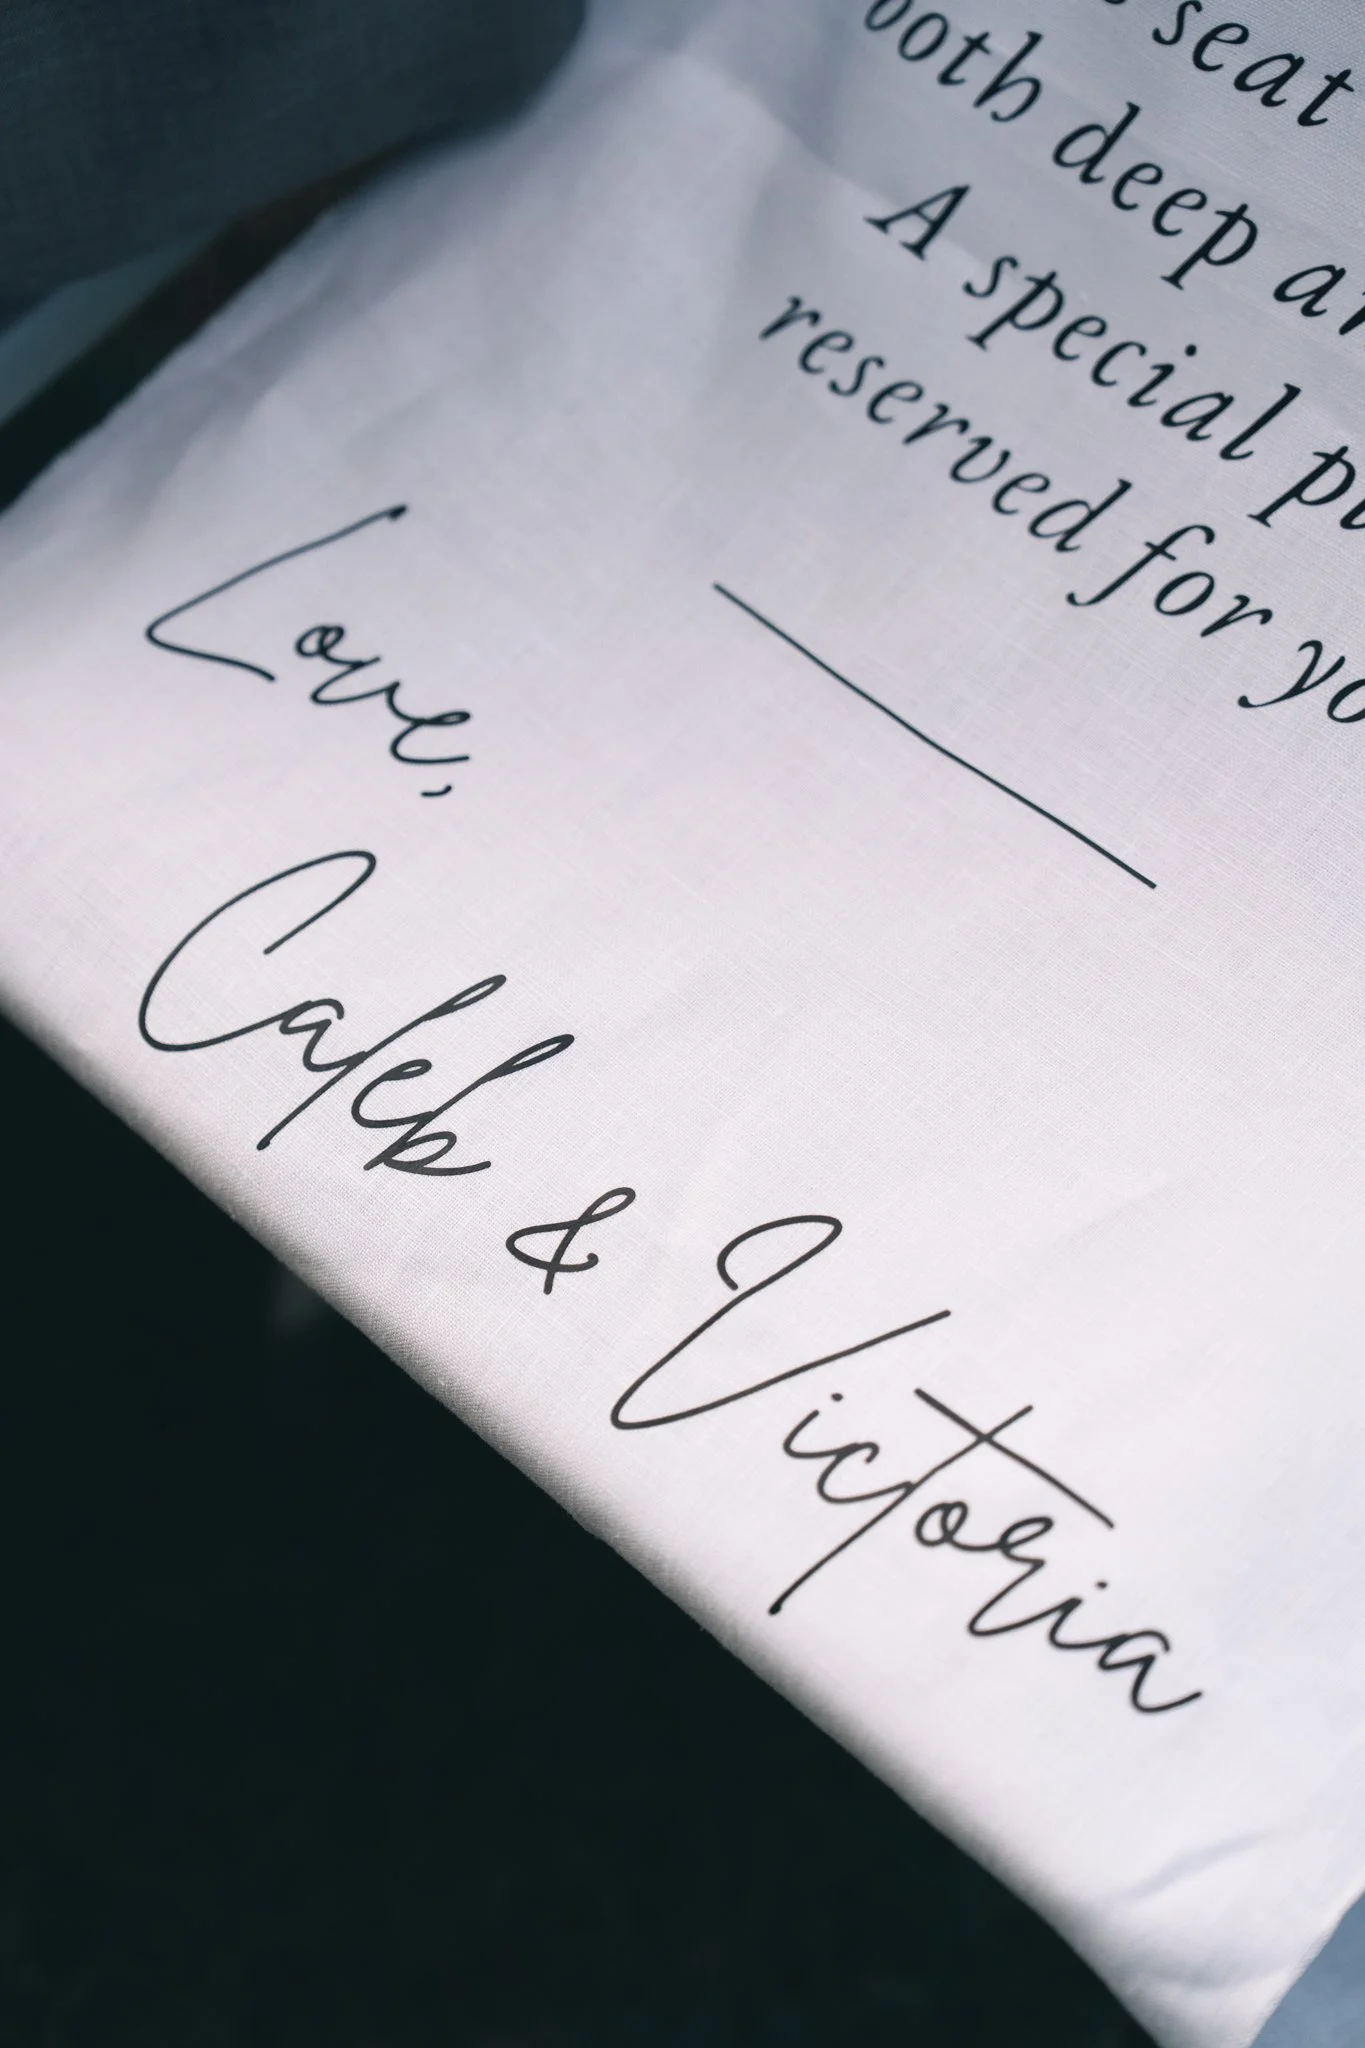 seat
both deep
A special
reserved for
Love,
Caleb & Victoria